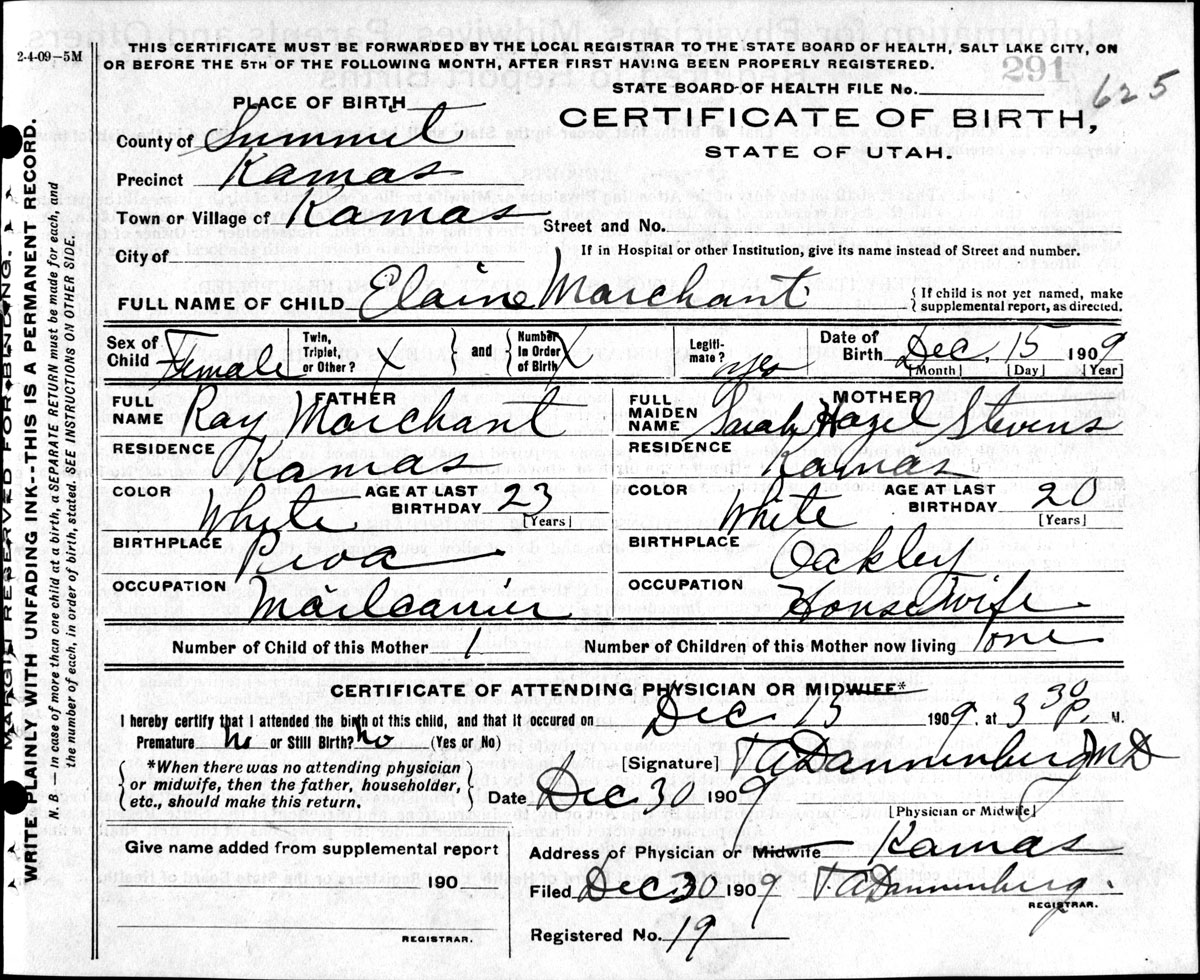 2-4-09—5M
THIS CERTIFICATE MUST BE FORWARDED BY THE LOCAL REGISTRAR TO THE STATE BOARD OF HEALTH, SALT LAKE CITY, ON
OR BEFORE THE 5TH OF THE FOLLOWING MONTH, AFTER FIRST HAVING BEEN PROPERLY REGISTERED.
291
STATE BOARD OF HEALTH FILE No. 625
PLACE OF BIRTH
CERTIFICATE OF BIRTH,
STATE OF UTAH.
County of Summit
Precinct Kamas
Town or Village of Kamas Street and No.
City of If in Hospital or other Institution, give its name instead of Street and number.
FULL NAME OF CHILD Elaine Marchant { If child is not yet named, make
supplemental report, as directed.
Sex of Child Female Twin, Triplet, or Other? X } and { Number in Order of Birth X Legiti-mate? yes Date of Birth Dec, 15 1909
[Month] [Day] [Year]
FATHER
FULL NAME Ray Marchant
RESIDENCE Kamas
COLOR White AGE AT LAST BIRTHDAY 23
[Years]
BIRTHPLACE Peoa
OCCUPATION Mailcarrier
MOTHER
FULL MAIDEN NAME Sarah Hazel Stevens
RESIDENCE Kamas
COLOR White AGE AT LAST BIRTHDAY 20
[Years]
BIRTHPLACE Oakley
OCCUPATION Housewife.
Number of Child of this Mother 1 Number of Children of this Mother now living one
CERTIFICATE OF ATTENDING PHYSICIAN OR MIDWIFE*
I hereby certify that I attended the birth of this child, and that it occured on Dec. 15 1909. at 3 30 P. M.
Premature No or Still Birth? No (Yes or No)
{ *When there was no attending physician
or midwife, then the father, householder,
etc., should make this return. }
[Signature] T. A. Dannenberg M D
Date Dec 30 1909
[Physician or Midwife]
Give name added from supplemental report
190
REGISTRAR.
Address of Physician or Midwife Kamas
Filed Dec 30 1909 T. A. Dannenberg.
REGISTRAR.
Registered No. 19
MARGIN RESERVED FOR BINDING.
WRITE PLAINLY WITH UNFADING INK--THIS IS A PERMANENT RECORD.
N. B.—In case of more than one child at a birth, a SEPARATE RETURN must be made for each, and
the number of each, in order of birth, stated. SEE INSTRUCTIONS ON OTHER SIDE.